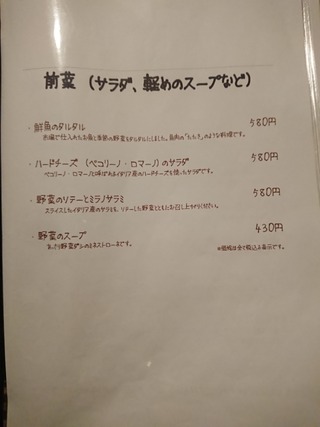 前菜（サラダ、軽めのスープなど）
・鮮魚のタルタル 580円
市場で仕入れたお魚と季節の野菜をタルタルにしました。魚肉の"たたき"のような料理です。
・ハードチーズ（ペコリーノ・ロマーノ）のサラダ 580円
ペコリーノ・ロマーノと呼ばれるイタリア産のハードチーズを使ったサラダです。
・野菜のソテーとミラノサラミ 580円
スライスしたイタリア産のサラミを、ソテーした野菜とともにお召し上がりください。
・野菜のスープ 430円
野菜ダシのミネストローネです。 ※価格は全て税込み表示です。